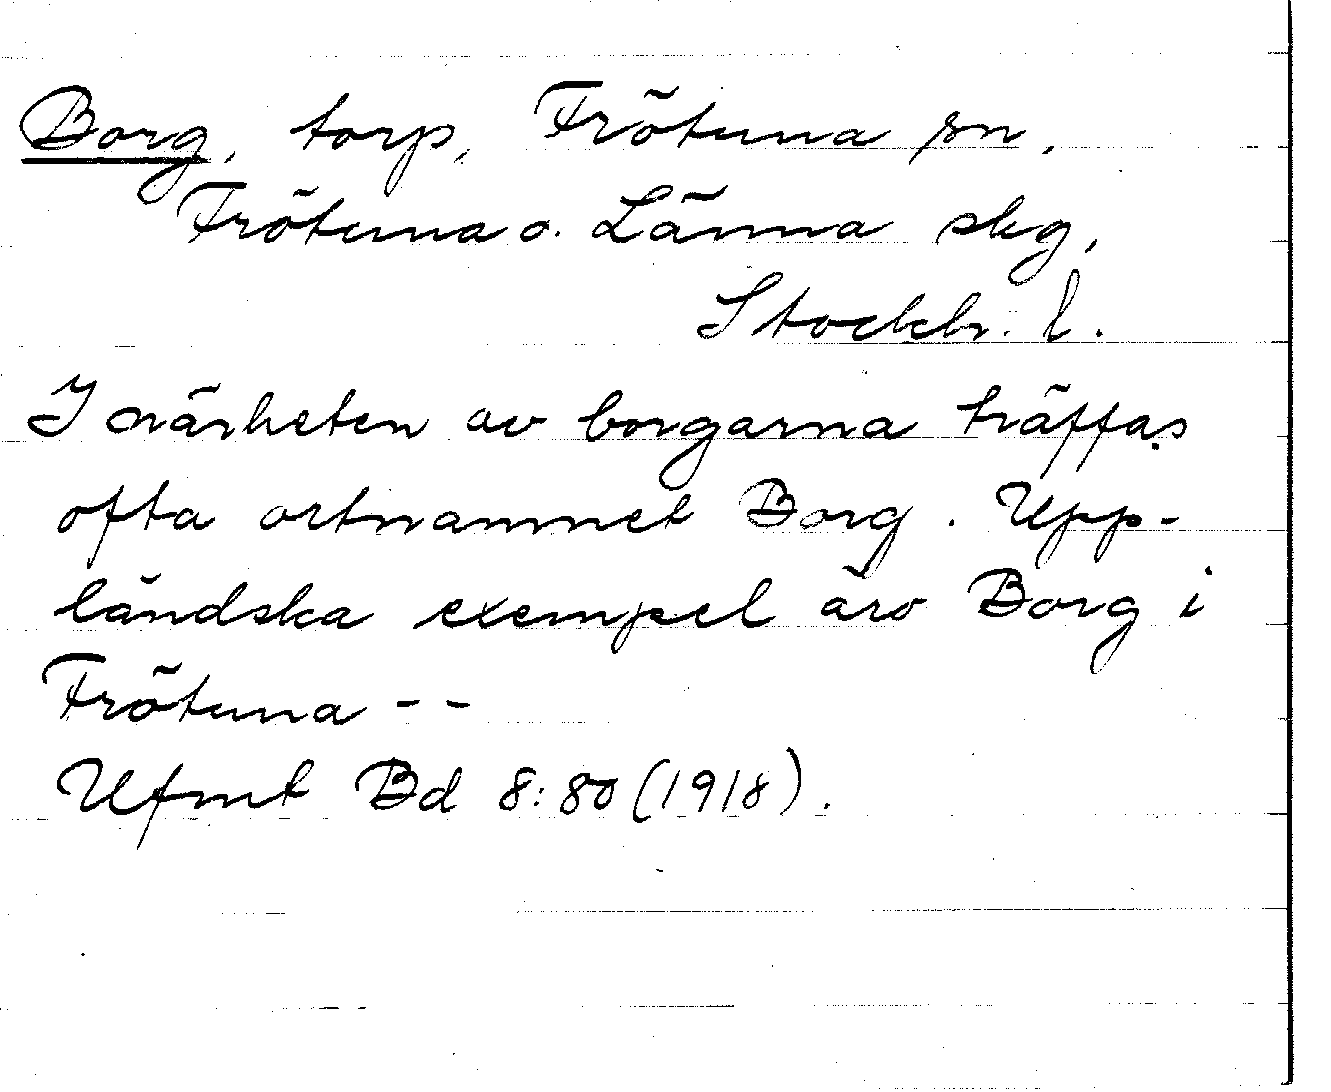 Borg, torp, Frötuna sn,
Frötuna o. Länna skg,
Stockh. l.
I närheten av borgarna träffas
ofta ortnamnet Borg. Upp-
ländska exempel äro Borg i
Frötuna --
Ufmt Bd 8:80 (1918).